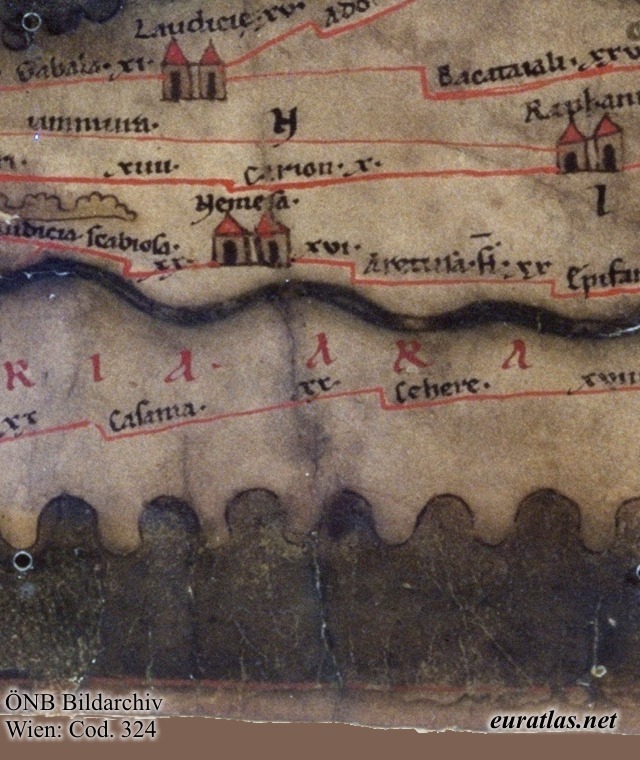 Laudicie · xv ·
Ado
Gabala · xi ·
Bacataiali · xxv
Raphan
H
xiiii ·
Carion · x ·
I
Hemesa ·
scabiosa ·
xx
xvi ·
xv
Epifan
R I A · A R A
xx
Casama ·
xx ·
Cehere ·
xviii
ÖNB Bildarchiv
Wien: Cod. 324
euratlas.net